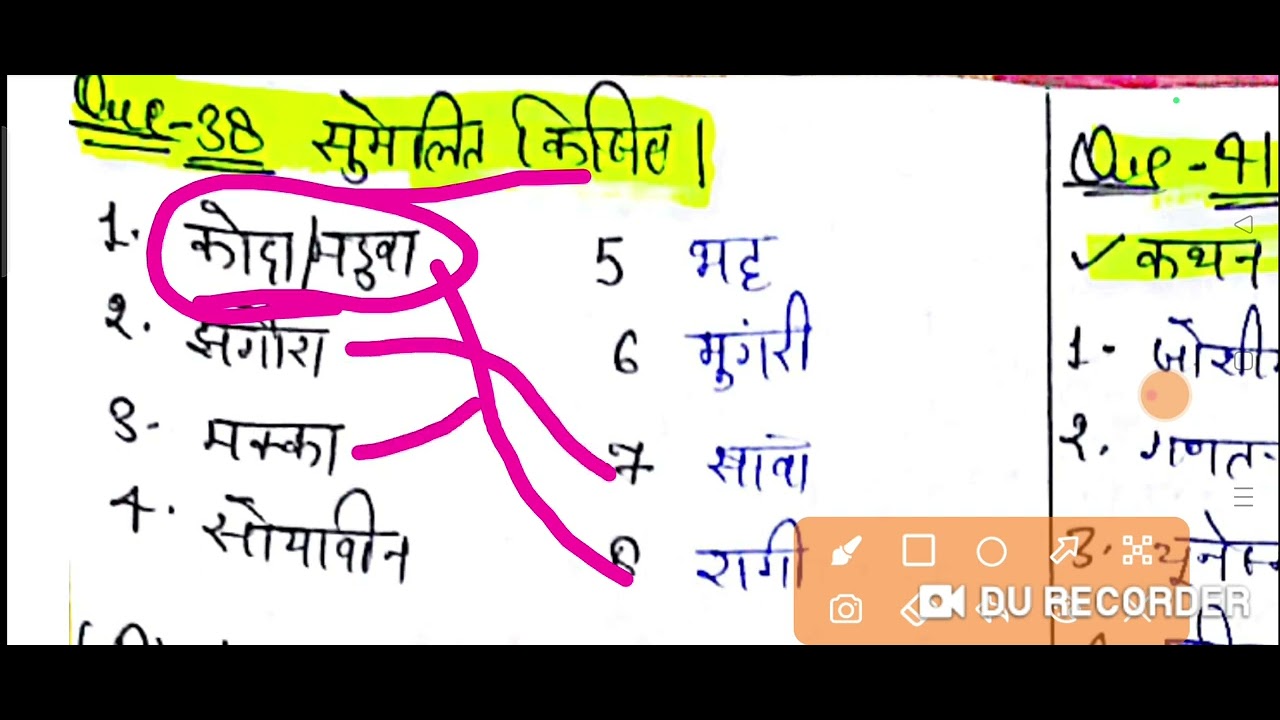 Que-38 सुमेलित किजिए।
1. कोदा/मडुवा
2. झंगोरा
3. मक्का
4. सोयाबीन
5 भट्ट
6 मुगंरी
7 सावां
8 रागी
Que-41
✓ कथन
1-
2. गणत
3.
DU RECORDER